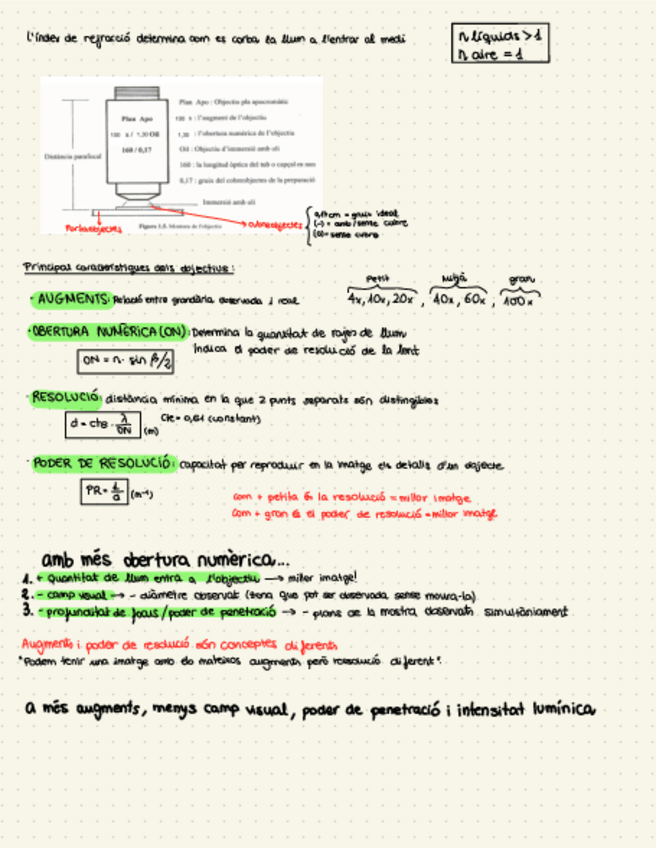 l'índex de refracció determina com es corba la llum a l'entrar al medi
n líquids > 1
n aire = 1
Plan Apo : Objectiu pla apocromàtic
Plan Apo
100 x : l'augment de l'objectiu
100 x / 1,30 Oil
1,30 : l'obertura numèrica de l'objectiu
Oil : Objectiu d'immersió amb oli
160 / 0,17
Distància parafocal
160 : la longitud òptica del tub o
0,17 : gruix del cobreobjectes de la preparació
Immersió amb oli
Portaobjectes
Figura 1.5. Montura de l'objectiu
cobreobjectes
0,17 cm = gruix ideal
(-) = amb/sense cubre
(0) = sense cubre
Principal característiques dels objectius:
Petit
Mitjà
gran
· AUGMENTS: Relació entre grandària observada i real
4x, 10x, 20x , 40x, 60x , 100x
· OBERTURA NUMÈRICA (ON): Determina la quantitat de rajos de llum
Indica el poder de resolució de la lent
ON = n · sin β/2
· RESOLUCIÓ: distància mínima en la que 2 punts separats són distingibles
d = cte · λ/ON (m)
Cte = 0,61 (constant)
· PODER DE RESOLUCIÓ: capacitat per reproduir en la imatge els detalls d'un objecte
PR = 1/d (m⁻¹)
com + petita és la resolució = millor imatge
com + gran és el poder de resolució = millor imatge
amb més obertura numèrica...
1. + Quantitat de llum entra a l'objectiu → millor imatge!
2. - camp visual → - diàmetre observat (zona que pot ser observada sense moure-la)
3. - profunditat de focus/poder de penetració → - plans de la mostra observats simultàniament
Augment i poder de resolució són conceptes diferents
"Podem tenir una imatge amb els mateixos augments però resolució diferent".
a més augments, menys camp visual, poder de penetració i intensitat lumínica